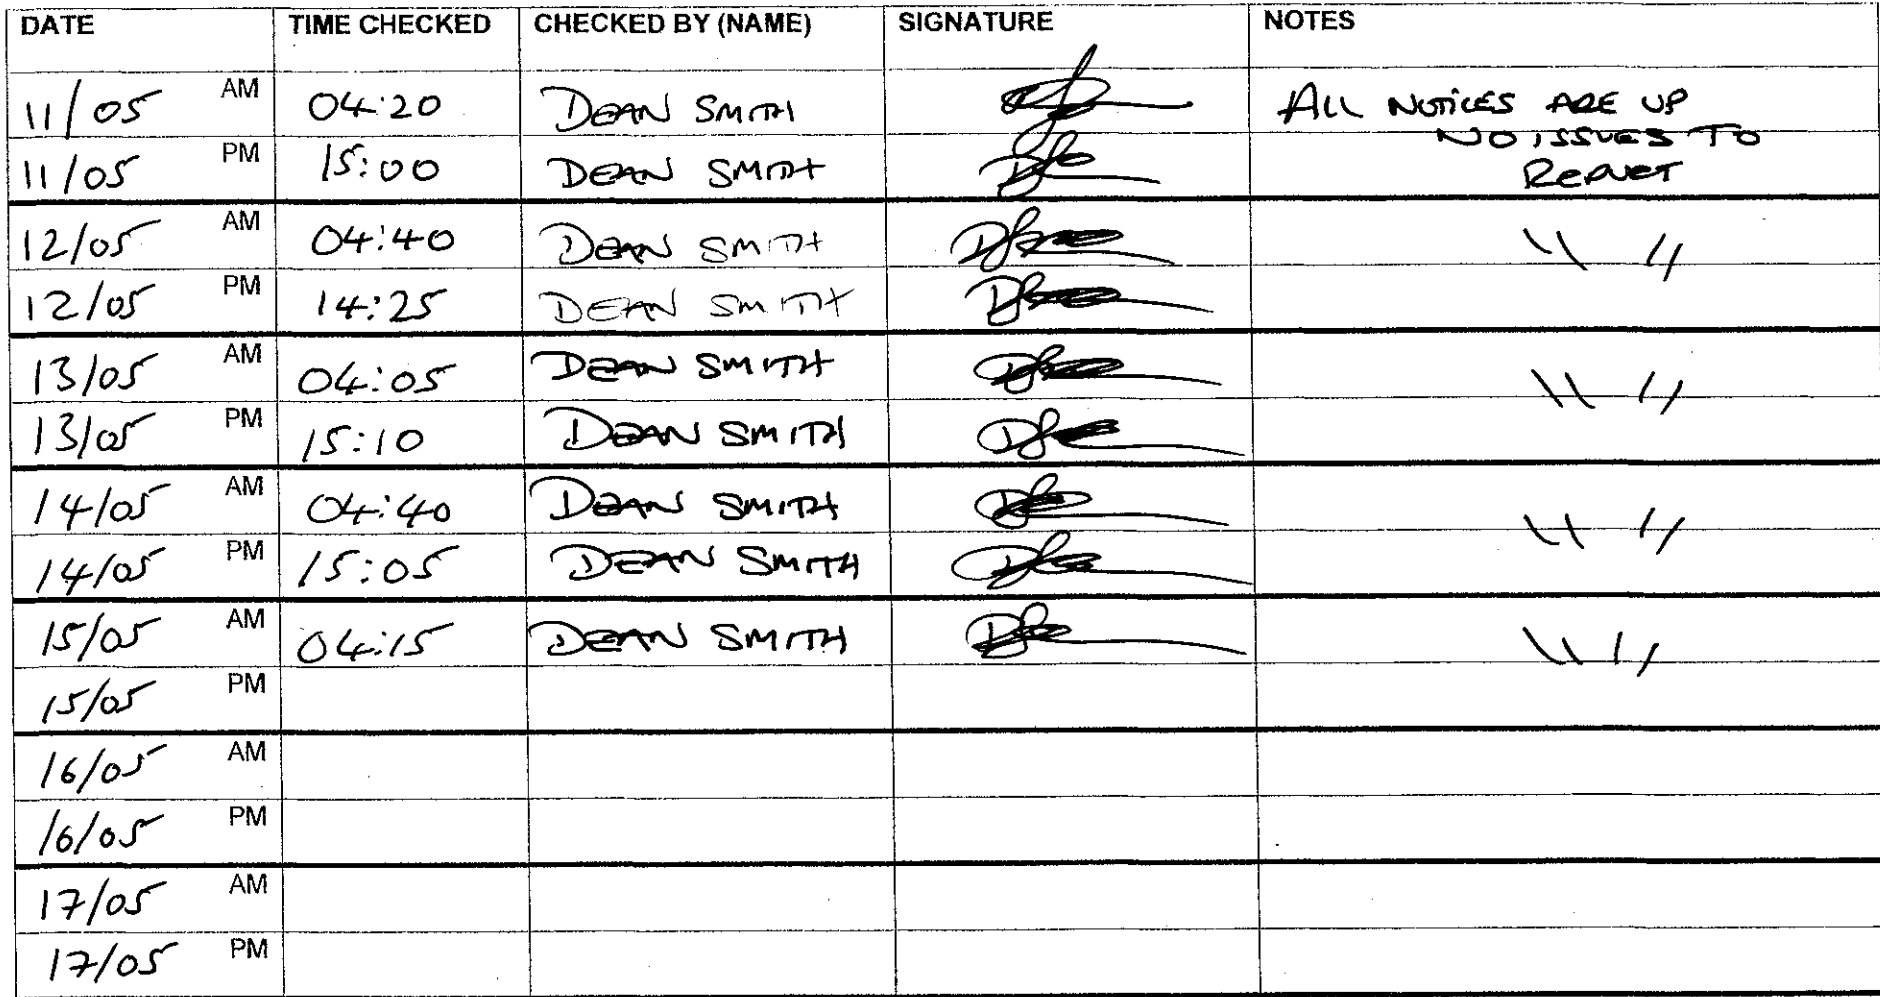 DATE TIME CHECKED CHECKED BY (NAME) SIGNATURE NOTES
11/05 AM 04:20 DEAN SMITH ALL NOTICES ARE UP
NO ISSUES TO
11/05 PM 15:00 DEAN SMITH REPORT
12/05 AM 04:40 DEAN SMITH \\ //
12/05 PM 14:25 DEAN SMITH
13/05 AM 04:05 DEAN SMITH \\ //
13/05 PM 15:10 DEAN SMITH
14/05 AM 04:40 DEAN SMITH \\ //
14/05 PM 15:05 DEAN SMITH
15/05 AM 04:15 DEAN SMITH \\ //
15/05 PM
16/05 AM
16/05 PM
17/05 AM
17/05 PM